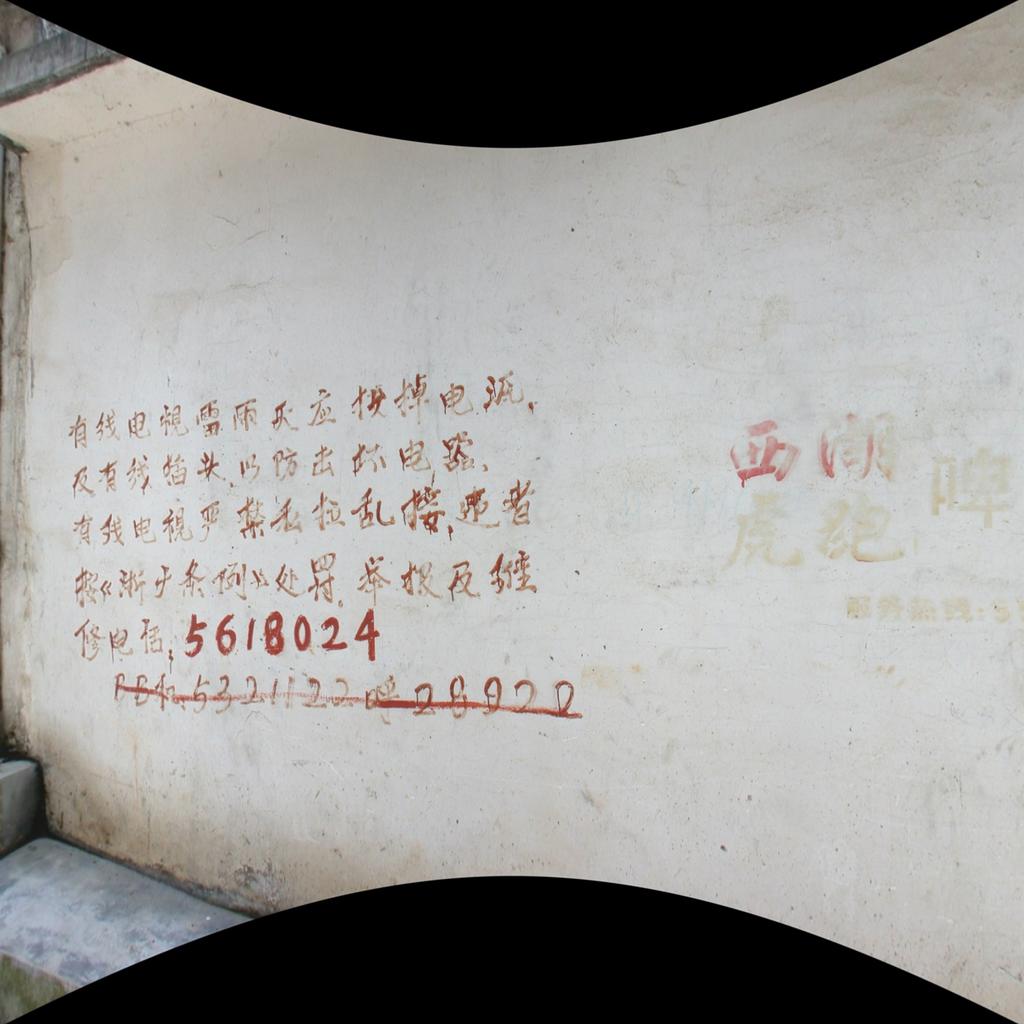 有线电视雷雨天应拔掉电源,
及有线插头,以防击坏电器.
有线电视严禁私拉乱接,违者
按《浙广条例》处罚.举报及维
修电话:5618024
BB机5321122呼28922
西湖
虎跑
啤
服务热线:5